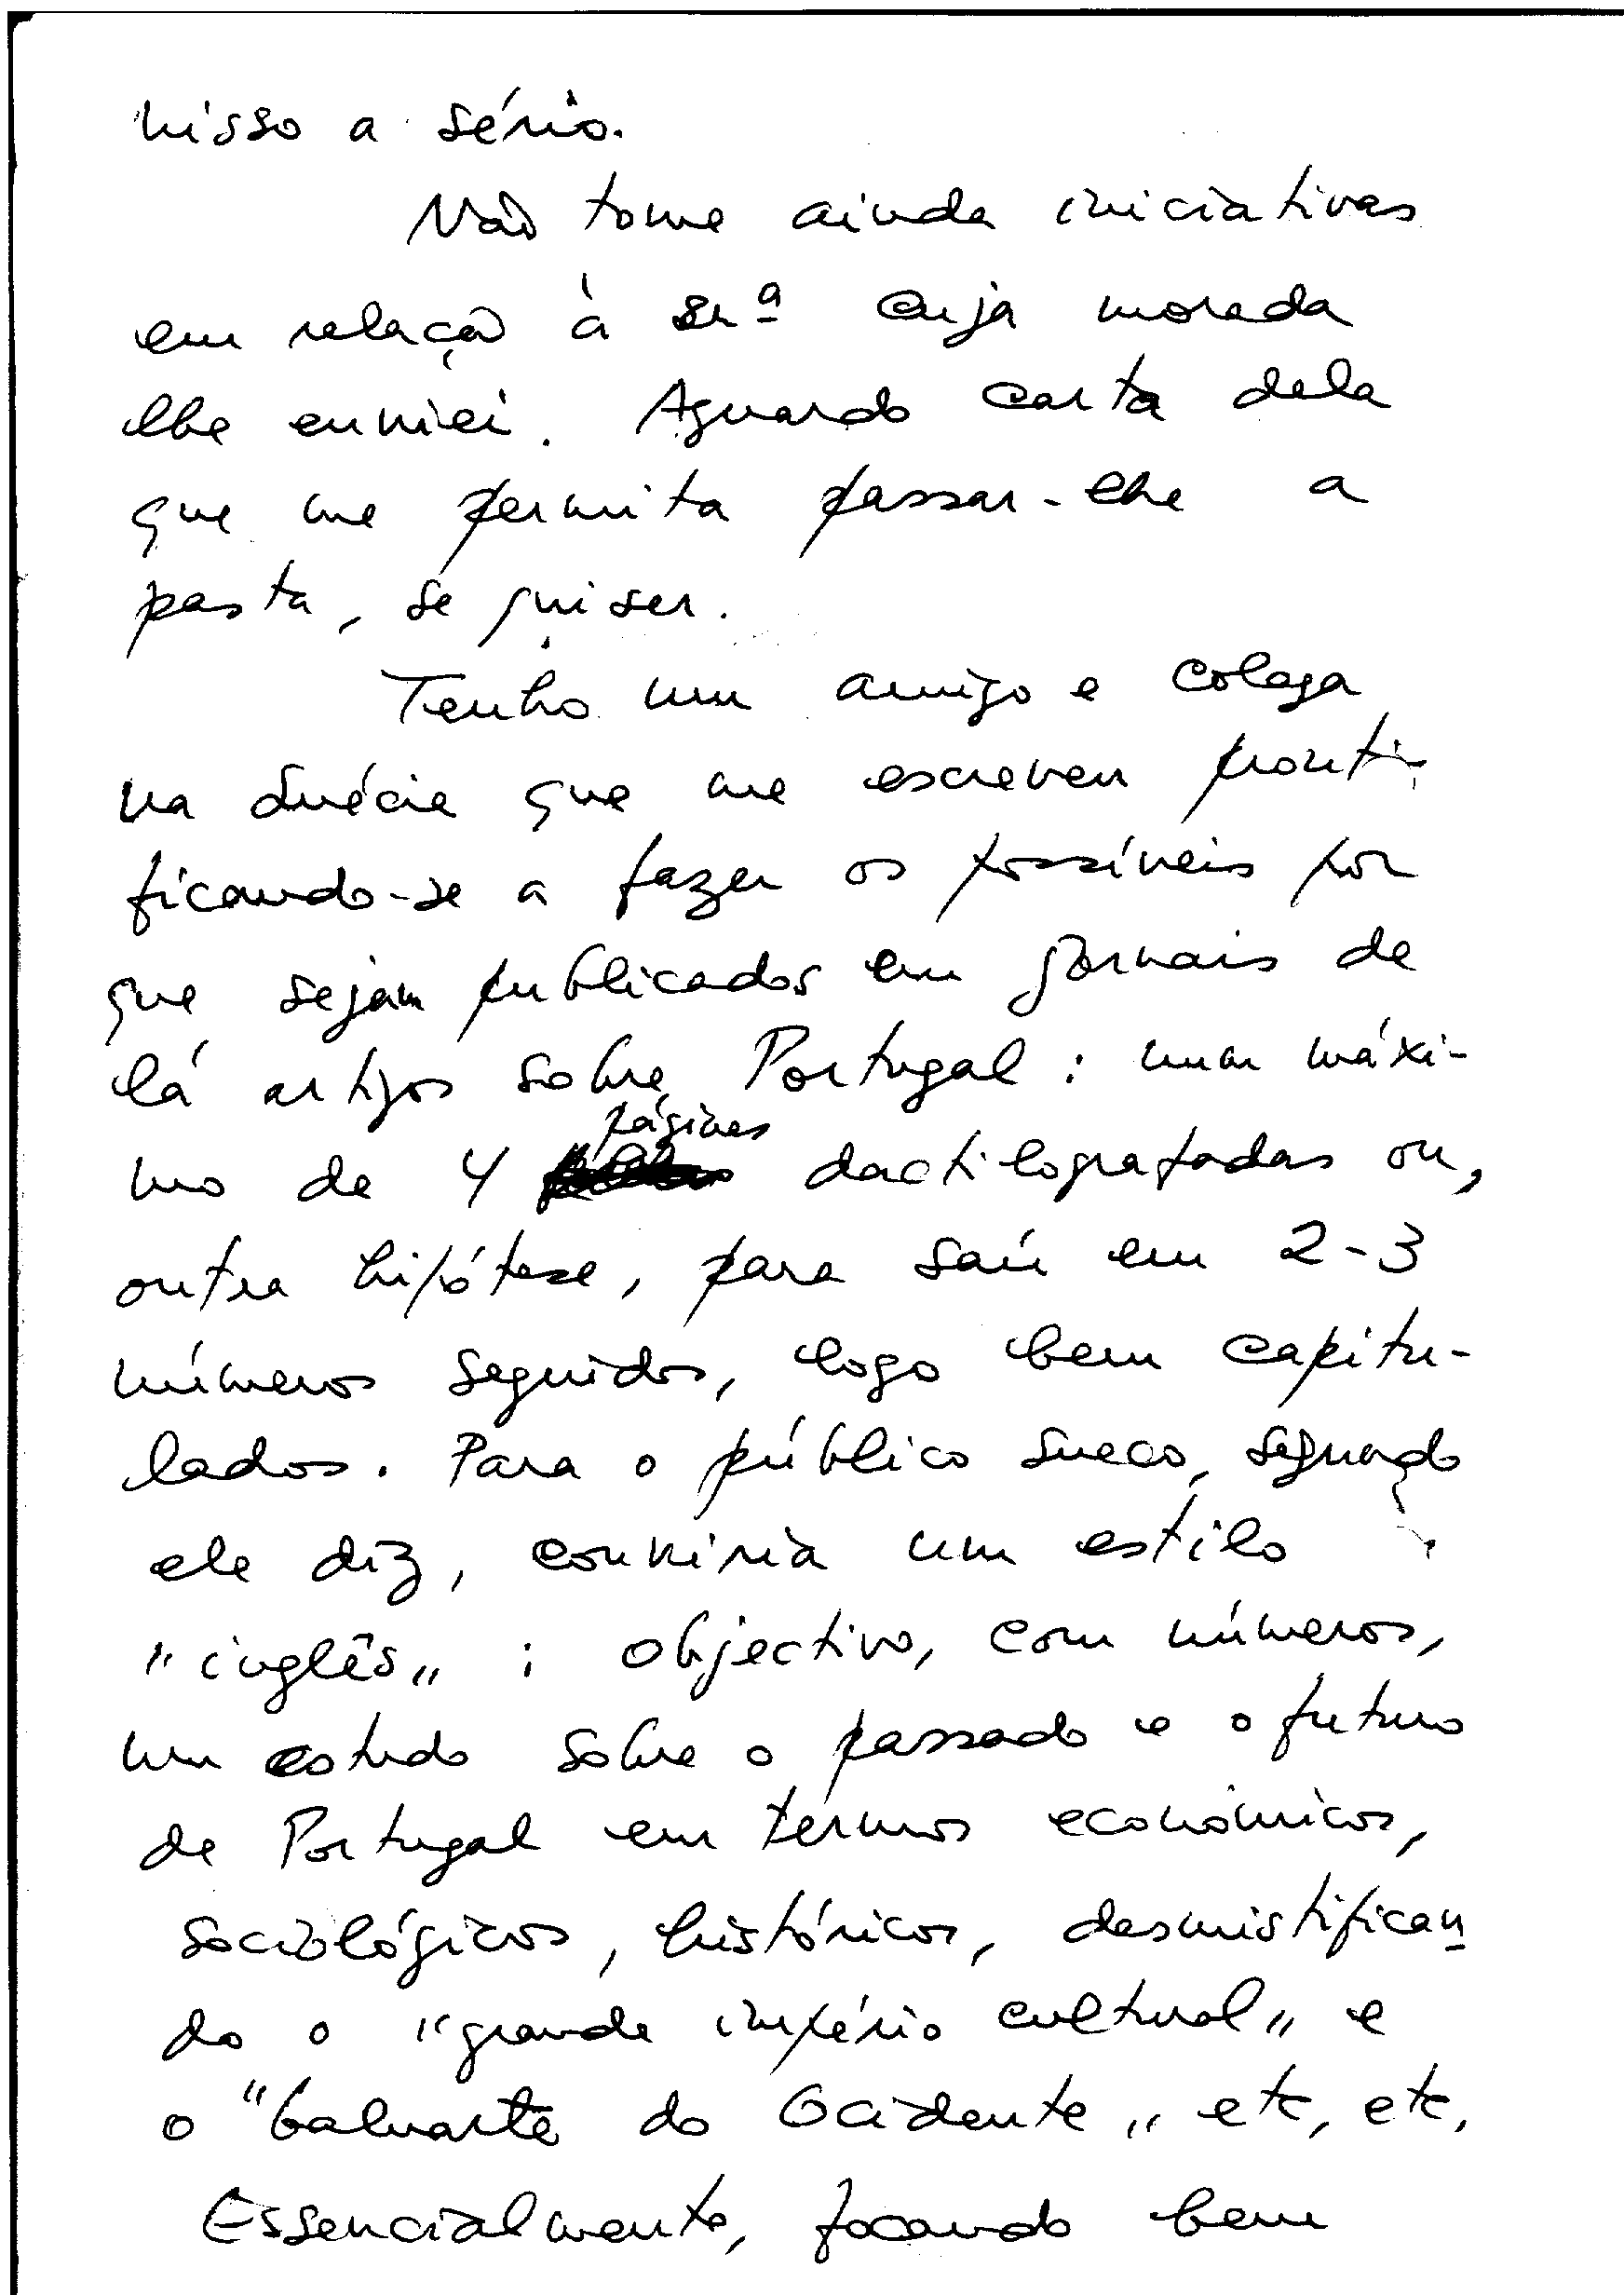 nisso a sério.
Não tome ainda iniciativas
em relação à srª cuja morada
lhe enviei. Aguardo carta dela
que me permita passar-lhe a
pasta, se quiser.
Tenho um amigo e colega
na Suécia que me escreveu pronti-
ficando-se a fazer os possíveis por
que sejam publicados em jornais de
lá artigos sobre Portugal: num máxi-
mo de 4 páginas dactilografadas ou,
outra hipótese, para sair em 2-3
números seguidos, logo bem capitu-
lados. Para o público sueco, segundo
ele diz, conviria um estilo
"inglês": objectivo, com números,
um estudo sobre o passado e o futuro
de Portugal em termos económicos,
sociológicos, históricos, desmistifican
do o "grande império cultural" e
o "baluarte do Ocidente" etc, etc.
Essencialmente, focando bem